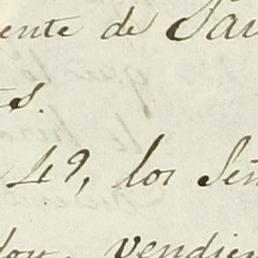 ente de San
es.
49, los Señ
dor, vendien